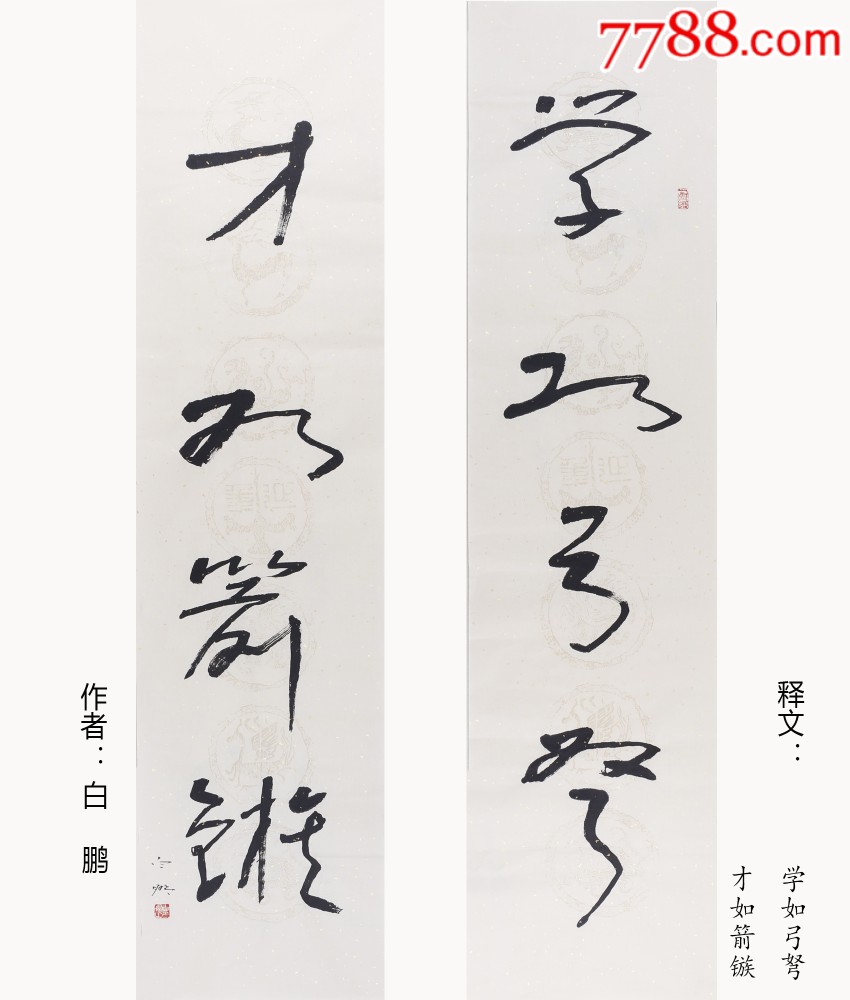 7788.com
学如弓弩
才如箭镞
释文：
学如弓弩
才如箭镞
作者：白鹏